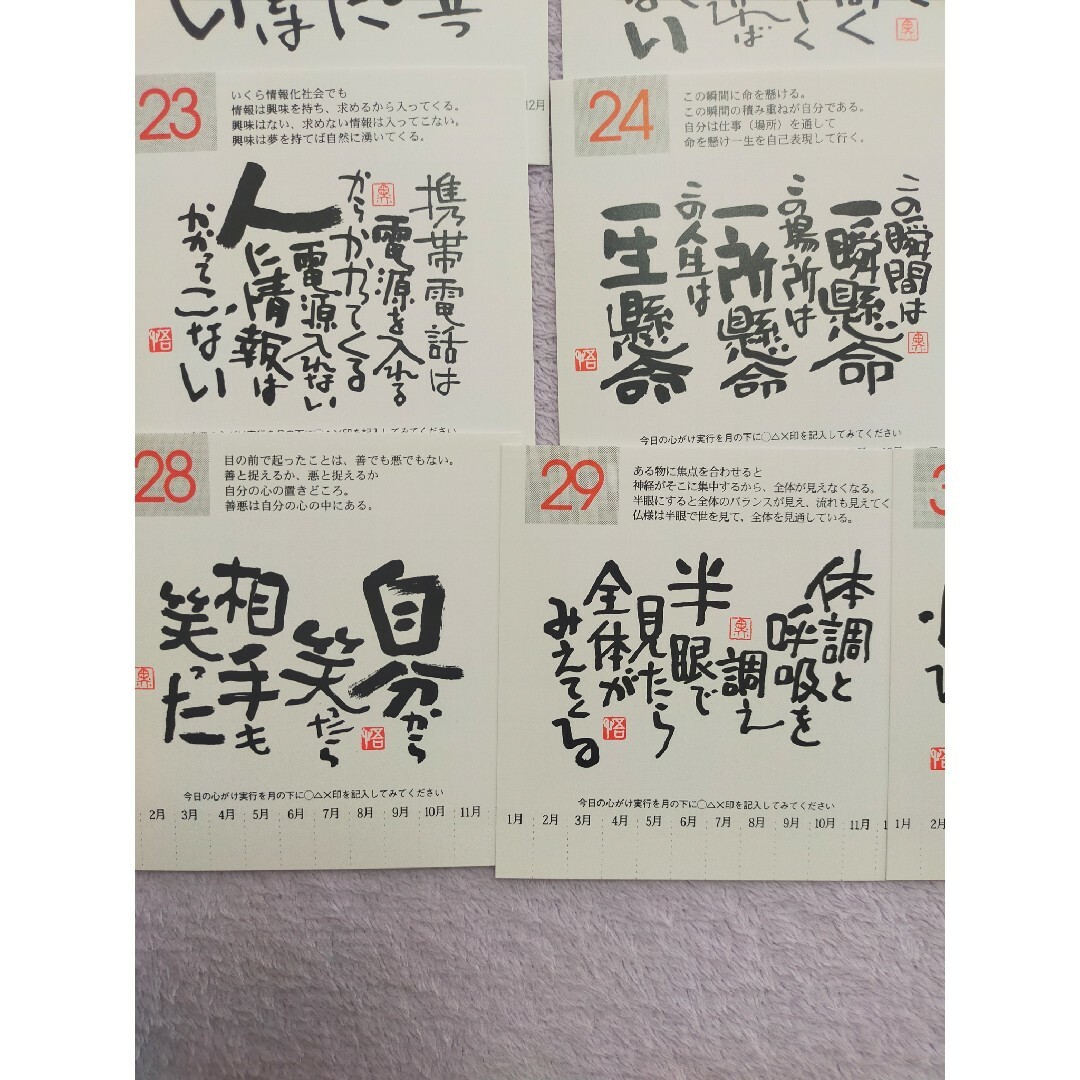 12月
23
いくら情報化社会でも
情報は興味を持ち、求めるから入ってくる。
興味はない、求めない情報は入ってこない。
興味は夢を持てば自然に湧いてくる。
携帯電話は
電源を入れる
からかかってくる
電源入れない
人に情報は
かかってこない
悟
24
この瞬間に命を懸ける。
この瞬間の積み重ねが自分である。
自分は仕事（場所）を通して
命を懸け一生を自己表現して行く。
この瞬間は
一瞬懸命
この場所は
一所懸命
この人生は
一生懸命
悟
今日の心がけ実行を月の下に○△×印を記入してみてください
今日の心がけ実行を月の下に○△×印を記入してみてください
28
目の前で起ったことは、善でも悪でもない。
善と捉えるか、悪と捉えるか
自分の心の置きどころ。
善悪は自分の心の中にある。
自分から
笑ったら
相手も
笑った
悟
今日の心がけ実行を月の下に○△×印を記入してみてください
2月 3月 4月 5月 6月 7月 8月 9月 10月 11月
29
ある物に焦点を合わせると
神経がそこに集中するから、全体が見えなくなる。
半眼にすると全体のバランスが見え、流れも見えてく
仏様は半眼で世を見て、全体を見通している。
体調と
呼吸を
調え
半眼で
見たら
全体が
みえてくる
悟
今日の心がけ実行を月の下に○△×印を記入してみてください
1月 2月 3月 4月 5月 6月 7月 8月 9月 10月 11月
1月 2月